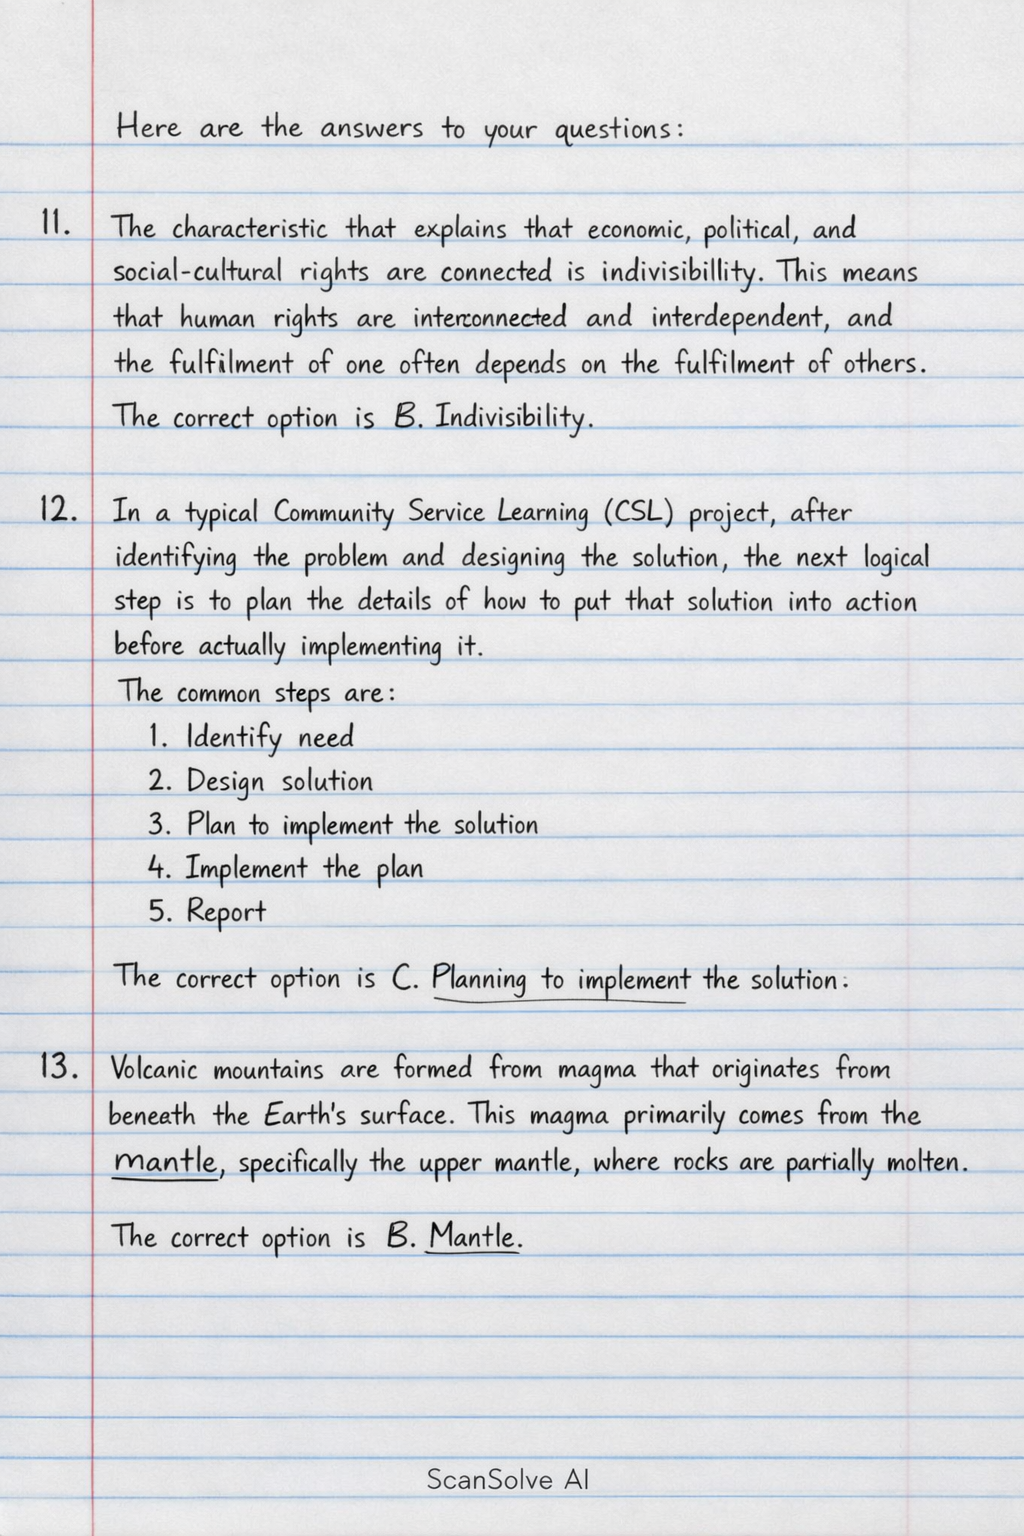 Here are the answers to your questions:
11. The characteristic that explains that economic, political, and
social-cultural rights are connected is indivisibillity. This means
that human rights are interconnected and interdependent, and
the fulfilment of one often depends on the fulfilment of others.
The correct option is B. Indivisibility.
12. In a typical Community Service Learning (CSL) project, after
identifying the problem and designing the solution, the next logical
step is to plan the details of how to put that solution into action
before actually implementing it.
The common steps are:
1. Identify need
2. Design solution
3. Plan to implement the solution
4. Implement the plan
5. Report
The correct option is C. Planning to implement the solution.
13. Volcanic mountains are formed from magma that originates from
beneath the Earth's surface. This magma primarily comes from the
mantle, specifically the upper mantle, where rocks are partially molten.
The correct option is B. Mantle.
ScanSolve AI